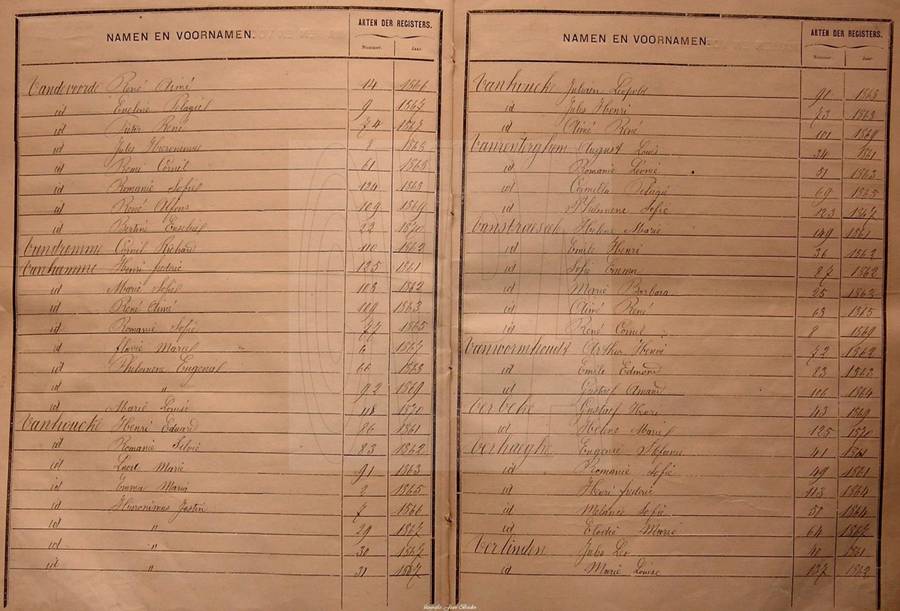 NAMEN EN VOORNAMEN. AKTEN DER REGISTERS.
Nummer. Jaar.
Vandevoorde René Aimé 14 1861
id 9 1867
id René 74 1867
id Jules Hieronimus 8 1865
id Remi Cornil 61 1865
id Romanie Sofie 124 1863
id René Alfons 109 1869
id Bertine 22 1870
Vandromme Cornil Richard 110 1862
Vanhamme Henri 125 1861
id Marie Sofie 103 1862
id René Aimé 109 1863
id Romanie Sofie 27 1865
id Marie 6 1867
id Philomene Eugenie 66 1868
id " 92 1869
id Marie Louise 1870
Vanhoucke Henri Eduard 86 1861
id Romanie Silvie 83 1862
id Marie 91 1863
id Emma Maria 2 1865
id Hieronimus 7 1866
id " 29 1867
id " 30 1867
id " 31 1867
NAMEN EN VOORNAMEN. AKTEN DER REGISTERS.
Nummer. Jaar.
Vanhoucke Leopold 91 1868
id Jules Henri 73 1868
id Aimé René 101 1869
August Louis 34 1861
id Romanie Leonie 51 1863
id Camilla Pelagie 69 1865
id Philomene Sofie 123 1867
Helene Marie 149 1861
id Emile Henri 36 1862
id Sofie Emma 87 1862
id Marie Barbara 25
id Aimé René 63 1865
id René Cornil 8 1869
Vanwormhoudt Arthur Henri 72 1862
id Emile Edmond 83 1863
id Gustaf Amand 106 1864
Verbeke Gustaef Henri 43 1869
id Helene Marie 125 1870
Verhaeghe Eugenie 41 1861
id Romanie Sofie 49 1861
id Henri 113 1864
id Melanie Sofie 50 1864
id Elodie Marie 64 1867
Verlinden Jules 40 1861
id Marie Louise 137 1862